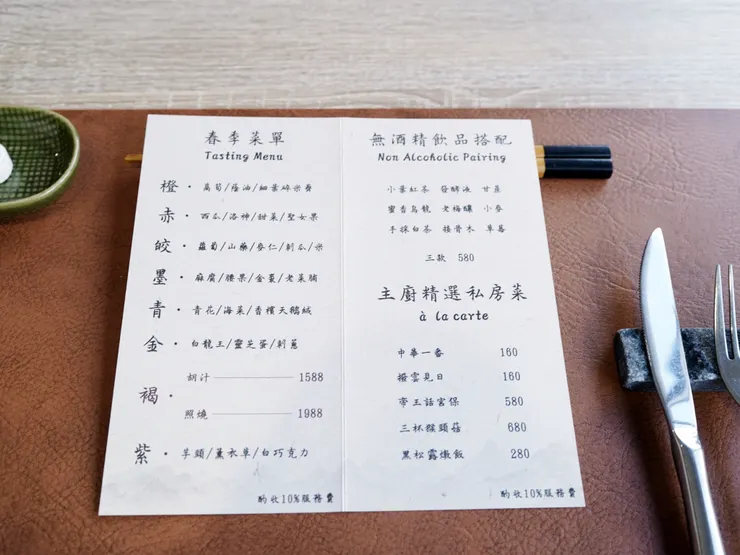 春季菜單
Tasting Menu
橙・萵筍/蔭油/細葉碎米薺
赤・西瓜/洛神/甜菜/聖女果
皎・蘿蔔/山藥/麥仁/刺瓜/米
墨・麻腐/腰果/金棗/老菜脯
青・青花/海菜/香檳天鵝絨
金・白龍王/靈芝蛋/刺蔥
褐・
胡汁 1588
照燒 1988
紫・芋頭/薰衣草/白巧克力
酌收10%服務費
無酒精飲品搭配
Non Alcoholic Pairing
小葉紅茶 發酵液 甘蔗
蜜香烏龍 老梅釀 小麥
手採白茶 接骨木 草莓
三款 580
主廚精選私房菜
à la carte
中華一番 160
撥雲見日 160
帝王話宮保 580
三杯猴頭菇 680
黑松露燉飯 280
酌收10%服務費